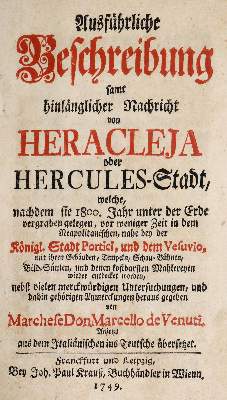 Ausführliche
Beschreibung
samt
hinlänglicher Nachricht
von
HERACLEJA
oder
HERCULES-Stadt,
welche,
nachdem sie 1800. Jahr unter der Erde
vergraben gelegen, vor weniger Zeit in dem
Neapolitanischen, nahe bey der
Königl. Stadt Portici, und dem Vesuvio,
mit ihren Gebäuden, Tempeln, Schau-Bühnen,
Bild-Säulen, und denen kostbarsten Mahlereyen
wieder entdecket worden,
nebst vielen merckwürdigen Untersuchungen, und
dahin gehörigen Anmerckungen heraus gegeben
von
Marchese Don Marcello de Venuti.
Anjetzo
aus dem Italiänischen ins Teutsche übersetzet.
Franckfurt und Leipzig,
Bey Joh. Paul Krauß, Buchhändler in Wienn,
1749.